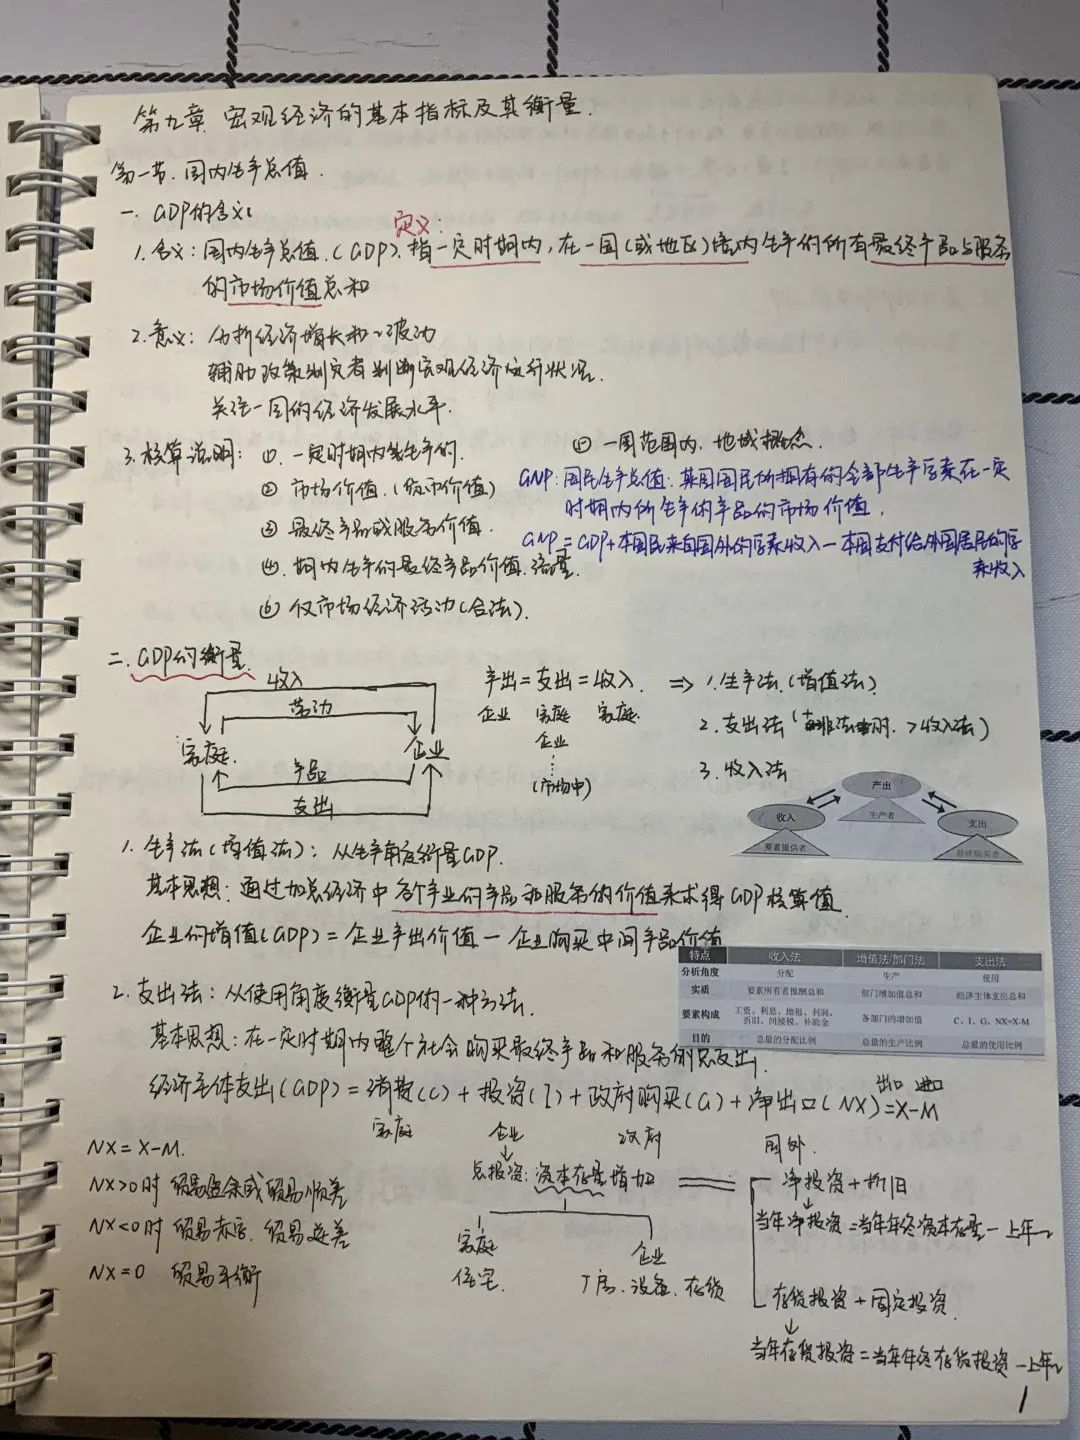 第九章 宏观经济的基本指标及其衡量.
第一节. 国内生产总值.
一. GDP的含义
定义:
1. 含义: 国内生产总值. (GDP). 指一定时期内, 在一国(或地区)境内生产的所有最终产品与服务
的市场价值总和
2. 意义: 分析经济增长和波动
辅助政策制定者判断宏观经济运行状况.
关注一国的经济发展水平.
3. 核算说明: ①. 一定时期内生产的.
② 市场价值. (货币价值)
③ 最终产品或服务价值.
④. 期内生产的最终产品价值. 流量.
⑥ 仅市场经济活动(合法).
⑤ 一国范围内. 地域概念.
GNP: 国民生产总值: 某国国民所拥有的全部生产要素在一定
时期内所生产的产品的市场价值.
GNP=GDP+本国民来自国外的要素收入-本国支付给外国居民的要
素收入
二. GDP的衡量.
收入
劳动
家庭. 企业
产品
支出
产出=支出=收入. => 1. 生产法. (增值法)
企业 家庭 家庭.
企业
(市场中)
2. 支出法 ( >收入法)
3. 收入法
产出
生产者
收入
要素提供者
支出
最终购买者
1. 生产法(增值法): 从生产角度衡量GDP.
基本思想: 通过加总经济中各个产业的产品和服务的价值来求得GDP核算值.
企业的增值(GDP)=企业产出价值-企业购买中间产品价值
特点 收入法 增值法/部门法 支出法
分析角度 分配 生产 使用
实质 要素所有者报酬总和 部门增加值总和 经济主体支出总和
要素构成 工资、利息、地租、利润、折旧、间接税、补助金 各部门的增加值 C、I、G、NX=X-M
目的 总量的分配比例 总量的生产比例 总量的使用比例
2. 支出法: 从使用角度衡量GDP的一种方法.
基本思想: 在一定时期内整个社会购买最终产品和服务的总支出.
经济主体支出(GDP)=消费(C)+投资(I)+政府购买(G)+净出口(NX)=X-M
出口 进口
家庭 企业 政府 国外.
NX=X-M.
NX>0时 贸易盈余或贸易顺差
NX<0时 贸易赤字. 贸易逆差
NX=0 贸易平衡
总投资: 资本存量增加
家庭 企业
住宅. 厂房. 设备. 存货
净投资+折旧
当年净投资=当年年终资本存量-上年~
存货投资+固定投资.
当年存货投资=当年年终存货投资-上年~
1